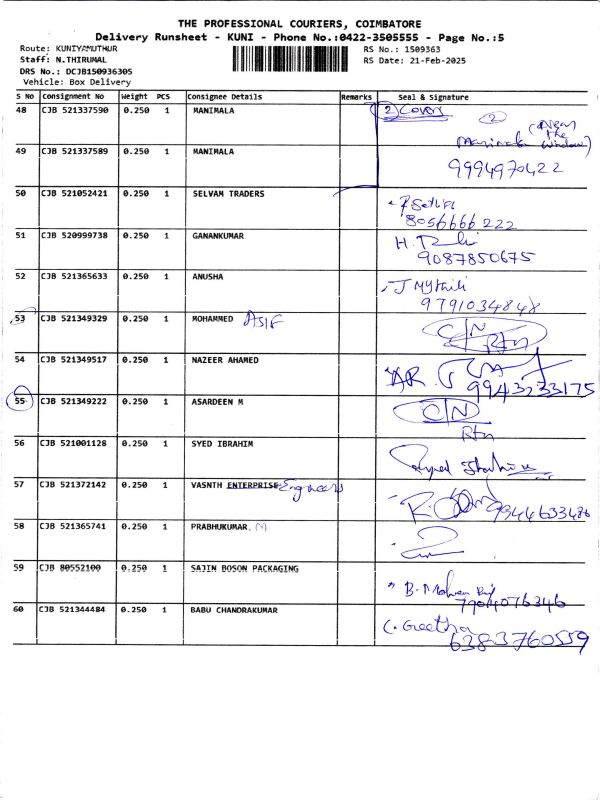 THE PROFESSIONAL COURIERS, COIMBATORE
Delivery Runsheet - KUNI - Phone No.:0422-3505555 - Page No.:5
Route: KUNIYAMUTHUR RS No.: 1509363
Staff: N.THIRUMAL RS Date: 21-Feb-2025
DRS No.: DCJB150936305
Vehicle: Box Delivery
S No Consignment No Weight PCS Consignee Details Remarks Seal & Signature
48 CJB 521337590 0.250 1 MANIMALA 2 Covers 2
(Near the window)
49 CJB 521337589 0.250 1 MANIMALA
9994970422
50 CJB 521052421 0.250 1 SELVAM TRADERS
8056666 222
51 CJB 520999738 0.250 1 GANANKUMAR
9087850675
52 CJB 521365633 0.250 1 ANUSHA J Mythili
9791034848
53 CJB 521349329 0.250 1 MOHAMMED ASIF C/N
Rtn
54 CJB 521349517 0.250 1 NAZEER AHAMED
9943233175
55 CJB 521349222 0.250 1 ASARDEEN M C/N
Rtn
56 CJB 521001128 0.250 1 SYED IBRAHIM
57 CJB 521372142 0.250 1 VASNTH ENTERPRISE Engineers
9944633486
58 CJB 521365741 0.250 1 PRABHUKUMAR. M
59 CJB 80552100 0.250 1 SAJIN BOSON PACKAGING
7904076346
60 CJB 521344484 0.250 1 BABU CHANDRAKUMAR C. Geetha
6383760559